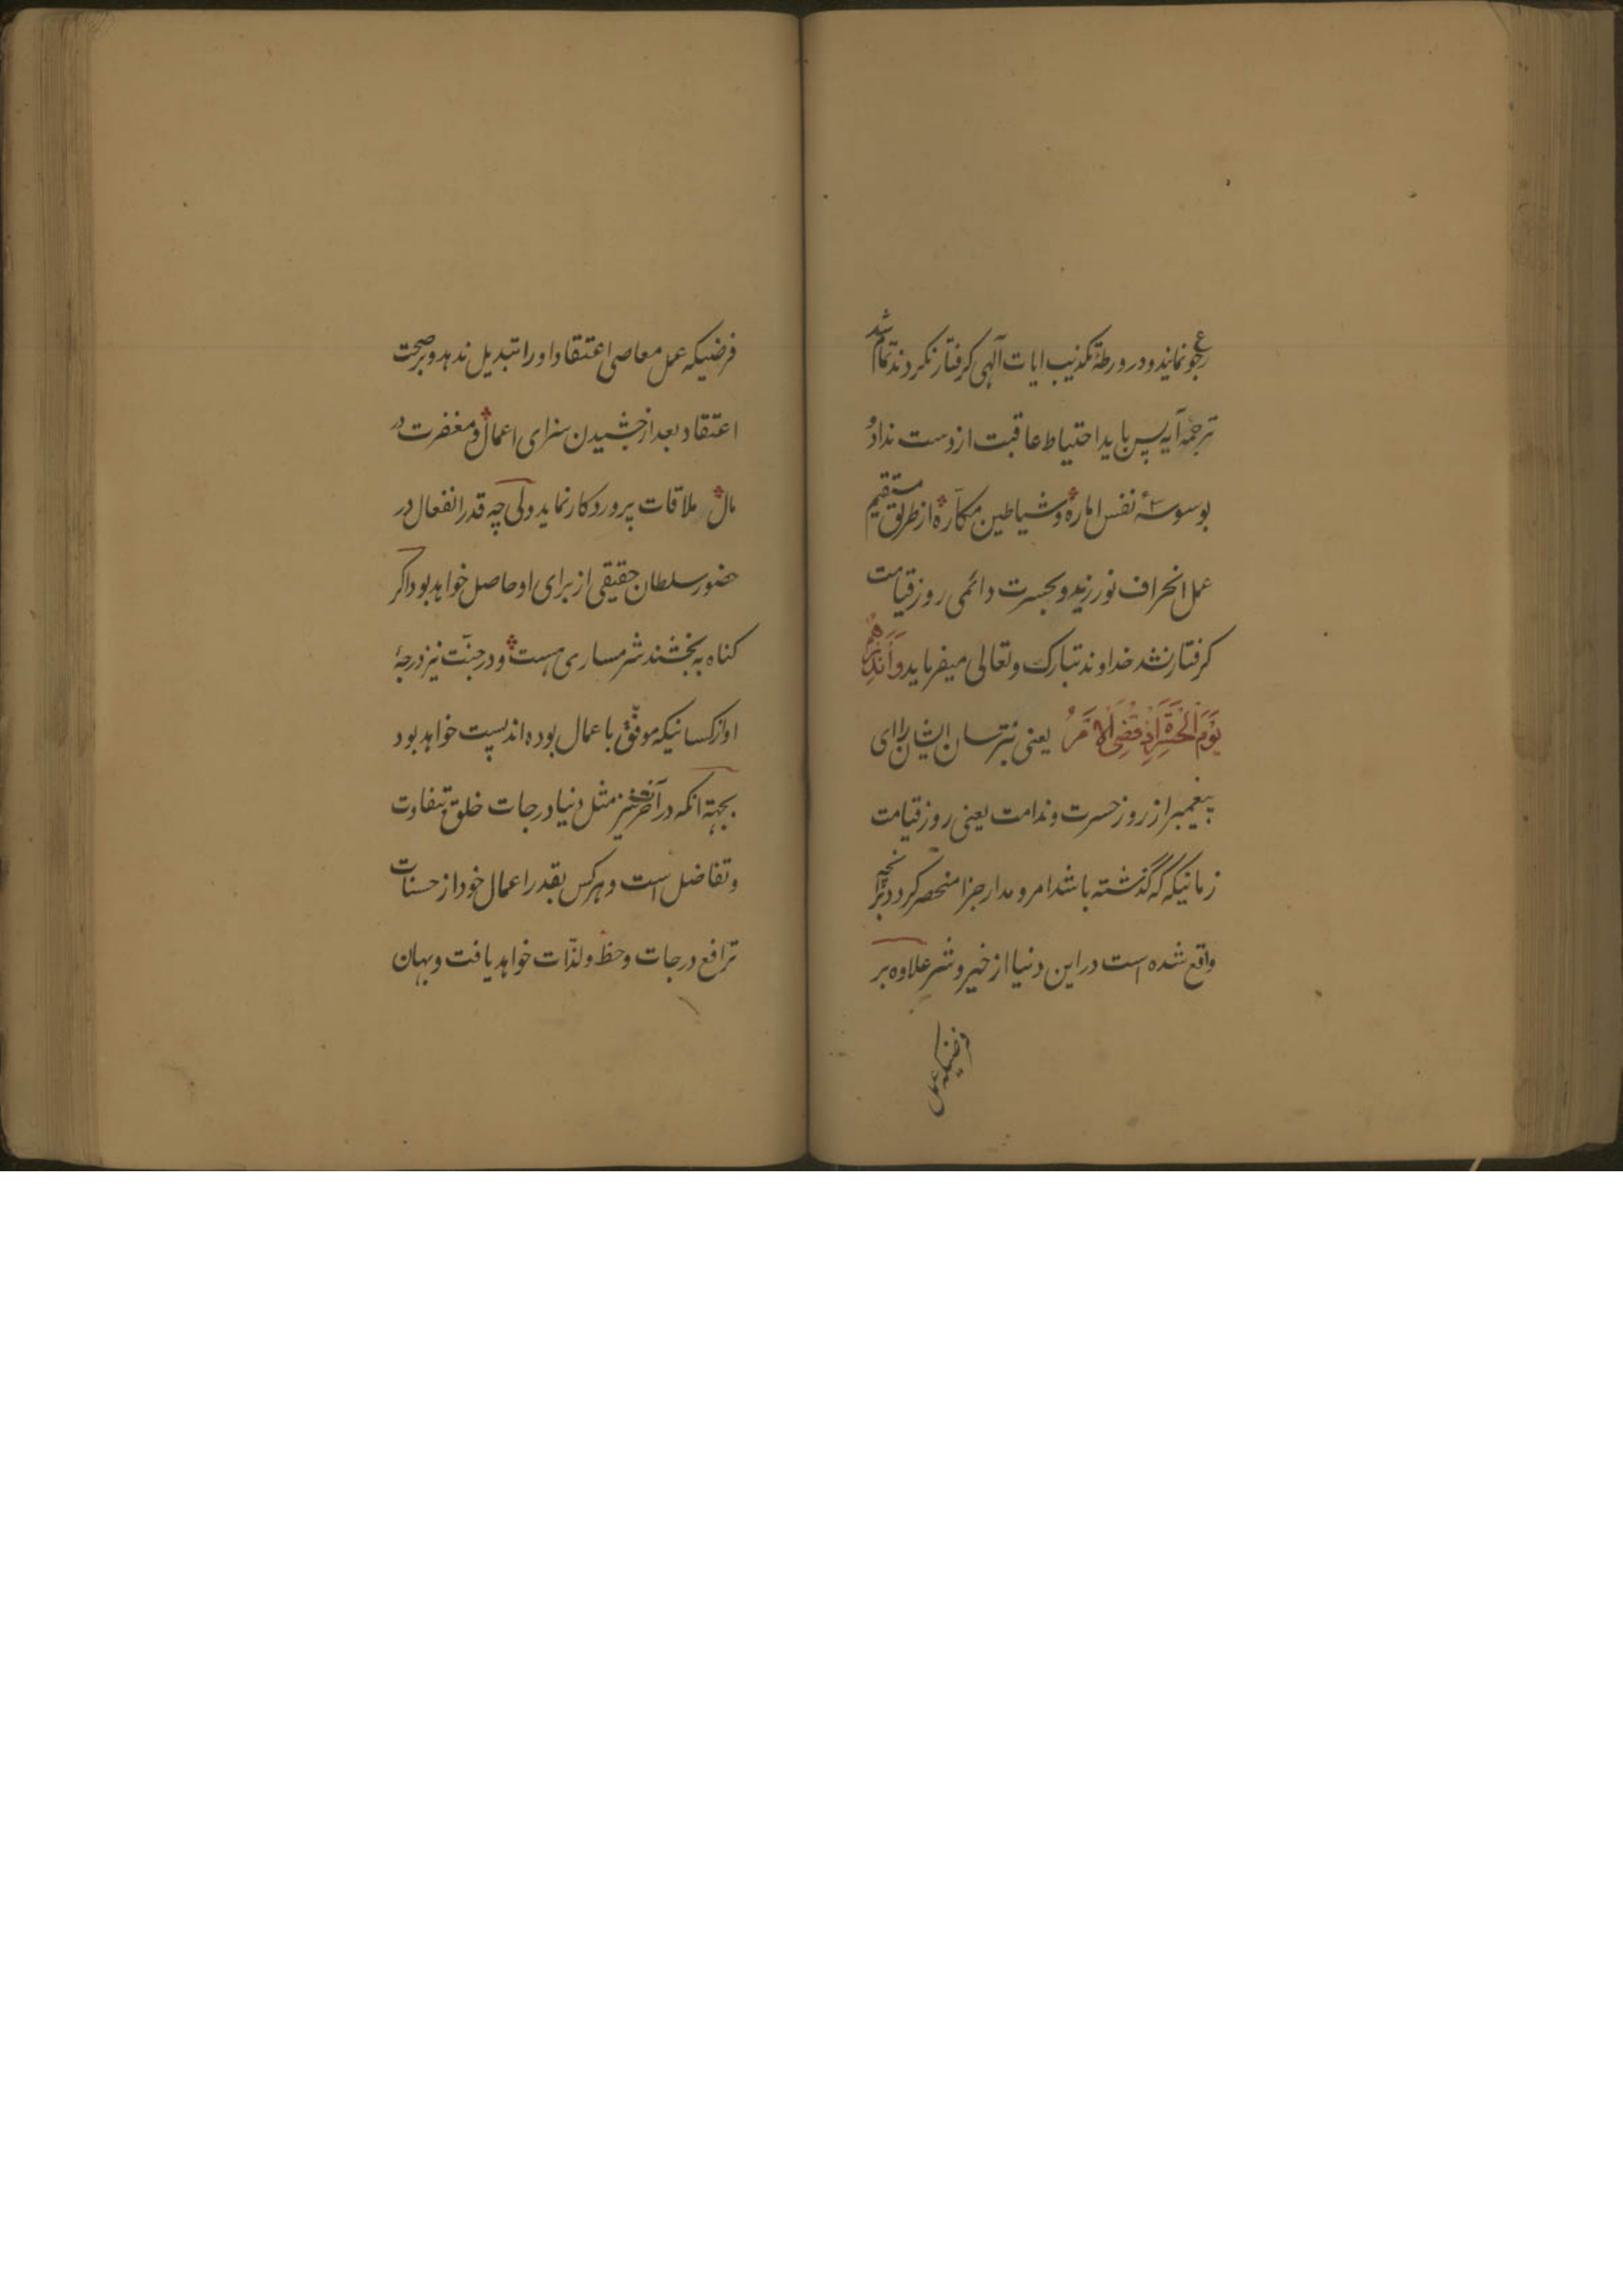 رجوع نمایند و در ورطهٔ تکذیب ایات آلهی کرفتار نکردند تمام شد
ترجمهٔ آیه پس باید احتیاط عاقبت از دست نداد و
بوسوسهٔ نفس اماره و شیاطین مکاره از طریق مستقیم
عمل انحراف نورزید و بحسرت دائمی روز قیامت
کرفتار نشد خداوند تبارک و تعالی میفرماید وَأَنذِرْهُمْ
يَوْمَ الْحَسْرَةِ إِذْ قُضِيَ الْأَمْرُ یعنی بترسان ایشان را ای
پیغمبر از روز حسرت و ندامت یعنی روز قیامت
زمانیکه گذشته باشد امر و مدار جزا منحصر کردد بر آنچه
واقع شده است در این دنیا از خیر و شر علاوه بر
فرضیکه عمل
فرضیکه عمل معاصی اعتقاد او را تبدیل ندهد و بر صحت
اعتقاد بعد از چشیدن سزای اعمال و مغفرت در
مال ملاقات پروردکار نماید ولی چه قدر انفعال در
حضور سلطان حقیقی از برای او حاصل خواهد بود اکر
کناه به بخشند شرمساری هست و در جنّت نیز درجهٔ
او از کسانیکه موفّق باعمال بوده اند پست خواهد بود
بجهة انکه در آخرت نیز مثل دنیا درجات خلق متفاوت
و تفاضل است و هر کس بقدر اعمال خود از حسنات
ترافع درجات و حظ و لذّات خواهد یافت و بهمان